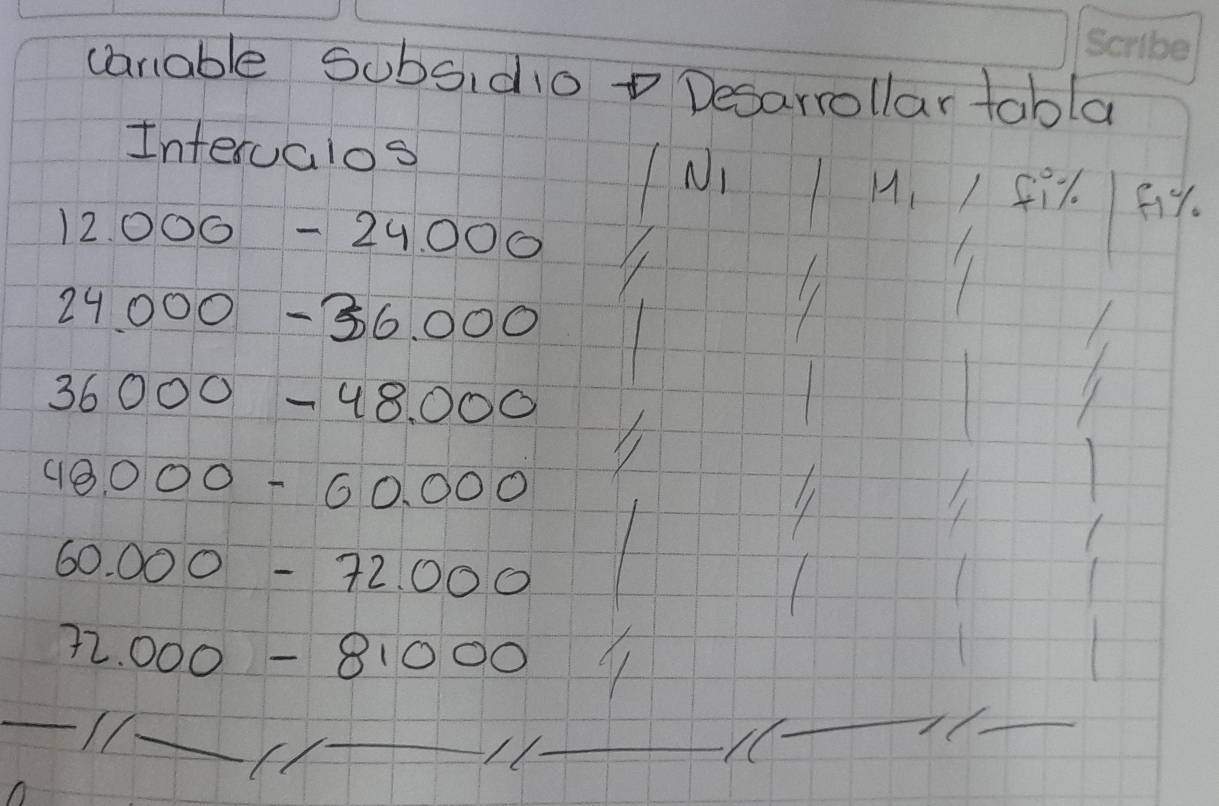 Scribe
Variable Subsidio → Desarrollar tabla
Intervalos / Ni / Mi / fi% / fi%
12.000 - 24.000
24.000 - 36.000
36000 - 48.000
48.000 - 60.000
60.000 - 72.000
72.000 - 81000